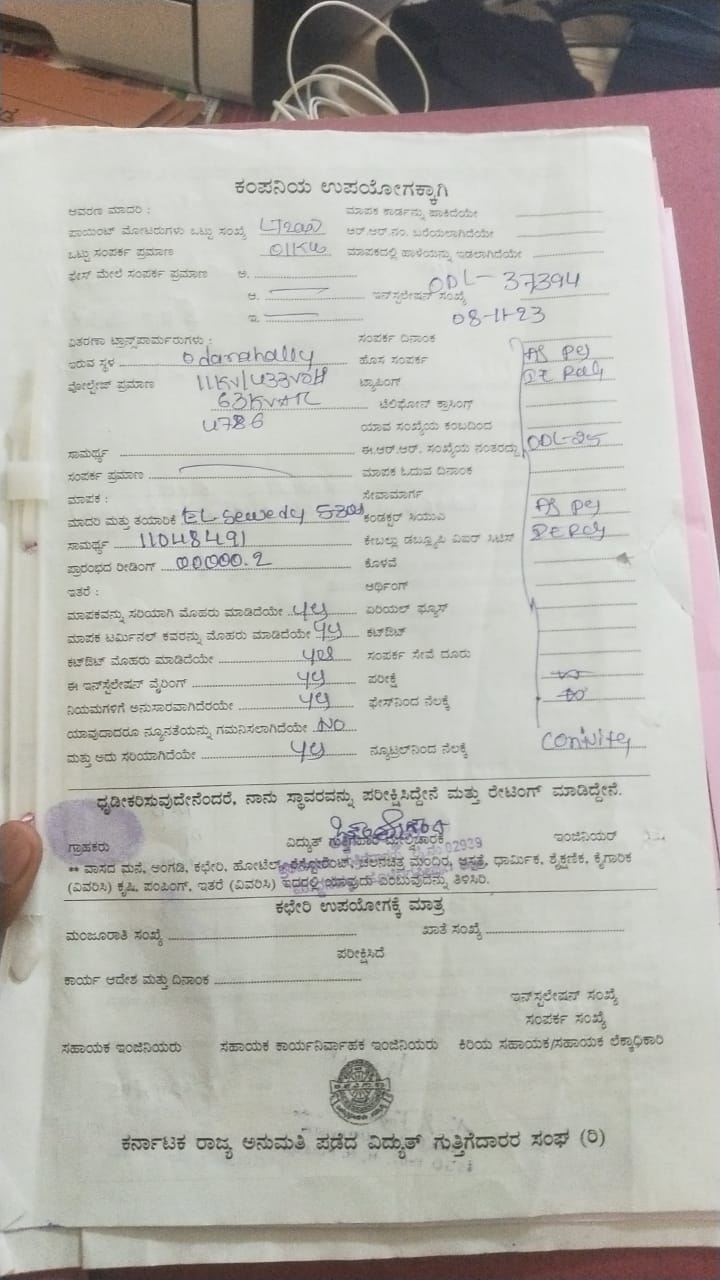 ಕಂಪನಿಯ ಉಪಯೋಗಕ್ಕಾಗಿ
ಆವರಣ ಮಾದರಿ : ಮಾಪಕ ಕಾರ್ಡನ್ನು ಹಾಕಿದೆಯೇ
ಪಾಯಿಂಟ್ ಮೋಟರುಗಳು ಒಟ್ಟು ಸಂಖ್ಯೆ ಆರ್.ಆರ್.ನಂ. ಬರೆಯಲಾಗಿದೆಯೇ
ಒಟ್ಟು ಸಂಪರ್ಕ ಪ್ರಮಾಣ 01KW ಮಾಪಕದಲ್ಲಿ ಹಾಳೆಯನ್ನು ಇಡಲಾಗಿದೆಯೇ
ಫೇಸ್ ಮೇಲೆ ಸಂಪರ್ಕ ಪ್ರಮಾಣ ಅ.
ಆ. ಇನ್‌ಸ್ಟಲೇಷನ್ ಸಂಖ್ಯೆ ODL-37394
ಇ. 08-11-23
ವಿತರಣಾ ಟ್ರಾನ್ಸ್‌ಪಾರ್ಮರುಗಳು : ಸಂಪರ್ಕ ದಿನಾಂಕ
ಇರುವ ಸ್ಥಳ Odarahally ಹೊಸ ಸಂಪರ್ಕ AS per
ವೋಲ್ಟೇಜ್ ಪ್ರಮಾಣ 11KV/433VOH ಟ್ಯಾಪಿಂಗ್
63KVAR ಟೆಲಿಫೋನ್ ಕ್ರಾಸಿಂಗ್
4786 ಯಾವ ಸಂಖ್ಯೆಯ ಕಂಬದಿಂದ
ಸಾಮರ್ಥ್ಯ ಈ.ಆರ್.ಆರ್. ಸಂಖ್ಯೆಯ ನಂತರದ್ದು ODL-25
ಸಂಪರ್ಕ ಪ್ರಮಾಣ ಮಾಪಕ ಓದುವ ದಿನಾಂಕ
ಮಾಪಕ : ಸೇವಾಮಾರ್ಗ
ಮಾದರಿ ಮತ್ತು ತಯಾರಿಕೆ EL Sewedy ಕಂಡಕ್ಟರ್ ಸಿಯುಎ AS per
ಸಾಮರ್ಥ್ಯ 11048491 ಕೇಬಲ್ಲು ಡಬ್ಲ್ಯೂಪಿ ವಿಐರ್ ಸಿಟಿಸ್
ಪ್ರಾರಂಭದ ರೀಡಿಂಗ್ 00000.2 ಕೊಳವೆ
ಇತರೆ : ಆರ್ಥಿಂಗ್
ಮಾಪಕವನ್ನು ಸರಿಯಾಗಿ ಮೊಹರು ಮಾಡಿದೆಯೇ yes ಏರಿಯಲ್ ಫ್ಯೂಸ್
ಮಾಪಕ ಟರ್ಮಿನಲ್ ಕವರನ್ನು ಮೊಹರು ಮಾಡಿದೆಯೇ yes ಕಟ್‌ಔಟ್
ಕಟ್‌ಔಟ್ ಮೊಹರು ಮಾಡಿದೆಯೇ yes ಸಂಪರ್ಕ ಸೇವೆ ದೂರು
ಈ ಇನ್‌ಸ್ಟಲೇಷನ್ ವೈರಿಂಗ್ yes ಪರೀಕ್ಷೆ
ನಿಯಮಗಳಿಗೆ ಅನುಸಾರವಾಗಿದೆರಯೇ yes ಫೇಸ್‌ನಿಂದ ನೆಲಕ್ಕೆ
ಯಾವುದಾದರೂ ನ್ಯೂನತೆಯನ್ನು ಗಮನಿಸಲಾಗಿದೆಯೇ NO
ಮತ್ತು ಅದು ಸರಿಯಾಗಿದೆಯೇ yes ನ್ಯೂಟ್ರಲ್‌ನಿಂದ ನೆಲಕ್ಕೆ
ಧೃಡೀಕರಿಸುವುದೇನೆಂದರೆ, ನಾನು ಸ್ಥಾವರವನ್ನು ಪರೀಕ್ಷಿಸಿದ್ದೇನೆ ಮತ್ತು ರೇಟಿಂಗ್ ಮಾಡಿದ್ದೇನೆ.
ಗ್ರಾಹಕರು ವಿದ್ಯುತ್ ಗುತ್ತಿಗೆದಾರ ಮೇಲ್ವಿಚಾರಕ ಇಂಜಿನಿಯರ್
** ವಾಸದ ಮನೆ, ಅಂಗಡಿ, ಕಛೇರಿ, ಹೋಟೆಲ್, ರೆಸ್ಟೋರೆಂಟ್, ಚಲನಚಿತ್ರ ಮಂದಿರ, ಆಸ್ಪತ್ರೆ, ಧಾರ್ಮಿಕ, ಶೈಕ್ಷಣಿಕ, ಕೈಗಾರಿಕ
(ವಿವರಿಸಿ) ಕೃಷಿ, ಪಂಪಿಂಗ್, ಇತರೆ (ವಿವರಿಸಿ) ಇದರಲ್ಲಿ ಯಾವುದು ಎಂಬುವುದನ್ನು ತಿಳಿಸಿರಿ.
ಕಛೇರಿ ಉಪಯೋಗಕ್ಕೆ ಮಾತ್ರ
ಮಂಜೂರಾತಿ ಸಂಖ್ಯೆ ಖಾತೆ ಸಂಖ್ಯೆ
ಪರೀಕ್ಷಿಸಿದೆ
ಕಾರ್ಯ ಆದೇಶ ಮತ್ತು ದಿನಾಂಕ
ಇನ್‌ಸ್ಟಲೇಷನ್ ಸಂಖ್ಯೆ
ಸಂಪರ್ಕ ಸಂಖ್ಯೆ
ಸಹಾಯಕ ಇಂಜಿನಿಯರು ಸಹಾಯಕ ಕಾರ್ಯನಿರ್ವಾಹಕ ಇಂಜಿನಿಯರು ಕಿರಿಯ ಸಹಾಯಕ/ಸಹಾಯಕ ಲೆಕ್ಕಾಧಿಕಾರಿ
ಕರ್ನಾಟಕ ರಾಜ್ಯ ಅನುಮತಿ ಪಡೆದ ವಿದ್ಯುತ್ ಗುತ್ತಿಗೆದಾರರ ಸಂಘ (ರಿ)